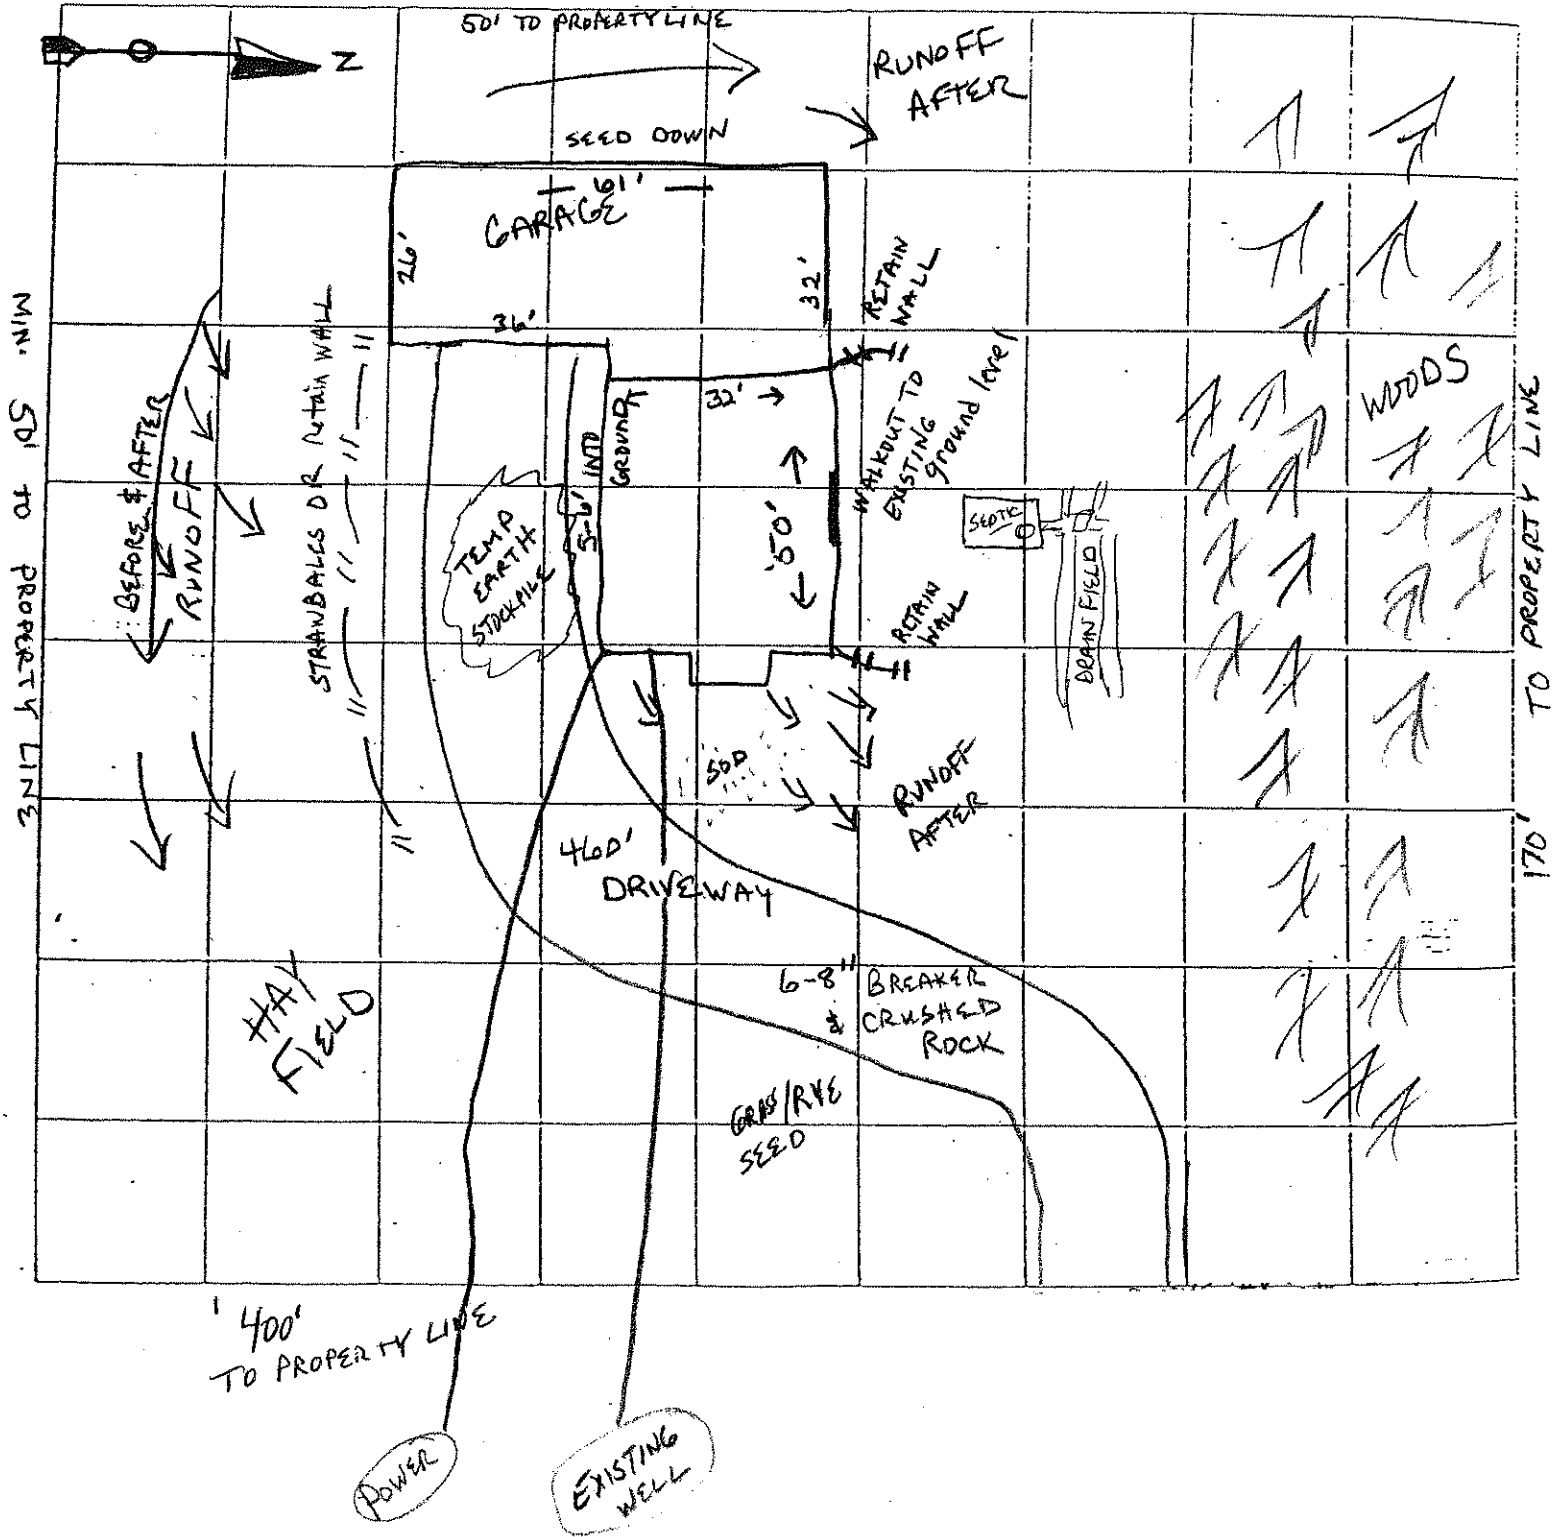 50' TO PROPERTY LINE
N
RUNOFF
AFTER
SEED DOWN
61'
GARAGE
26'
32'
RETAIN
WALL
36'
MIN. 50' TO PROPERTY LINE
BEFORE & AFTER
RUNOFF
STRAWBALES OR Retain WALL
TEMP
EARTH
STOCKPILE
5-6' INTO
GROUND
32'
50'
WALKOUT TO
EXISTING
ground level
SEPTIC
DRAIN FIELD
WOODS
170' TO PROPERTY LINE
RETAIN
WALL
SOD
RUNOFF
AFTER
460'
DRIVEWAY
6-8" BREAKER
& CRUSHED
ROCK
HAY
FIELD
GRASS/RYE
SEED
400'
TO PROPERTY LINE
POWER
EXISTING
WELL